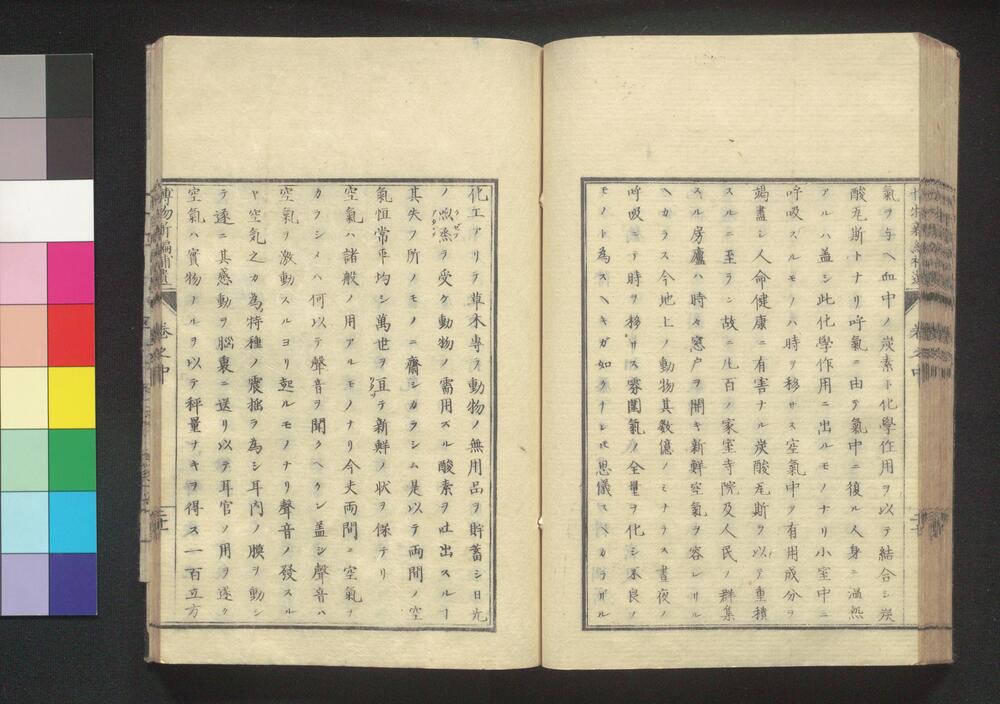 氣ヲ与ヘ血中ノ炭素ト化學作用ヲ以テ結合シ炭
酸瓦斯トナリ呼氣ニ由テ氣中ニ復ル人身ニ温煦
アルハ蓋シ此化學作用ニ出ルモノナリ小室中ニ
呼吸スルモノハ時ヲ移サス空氣中ノ有用成分ヲ
竭盡シ人命健康ニ有害ナル炭酸瓦斯ヲ以テ重積
スルニ至ラン故ニ凡百ノ家室寺院及人民ノ群集
スル房廬ハ時々窓戸ヲ開キ新鮮空氣ヲ容レサル
ヘカラス今地上ノ動物其数億ノミナラス晝夜ノ
呼吸ニテ時ヲ移サス雰圍氣ノ全量ヲ化シ不良ノ
モノト為スヘキガ如クナレ𪜈思儀スヘカラザル
化工アリテ草木専ラ動物ノ無用品ヲ貯蓄シ日光
ノ煦𤋱ヲ受ケ動物ノ需用スル酸素ヲ吐出スルヿ
其失フ所ノモノニ齊シカラシム是以テ両間ノ空
氣恒常平均シ萬世ヲ亘テ新鮮ノ状ヲ保テリ
空氣ハ諸般ノ用アルモノナリ今夫両間ニ空氣ヲ
カラシメハ何以テ聲音ヲ聞クヘケン蓋シ聲音ハ
空氣ヲ激動スルヨリ起ルモノナリ聲音ノ發スル
ヤ空気之カ為特種ノ震揺ヲ為シ耳内ノ膜ヲ動シ
テ遂ニ其感動ヲ腦裏ニ送リ以テ耳官ノ用ヲ遂ク
空氣ハ實物ナルヲ以テ秤量ナキヲ得ス一百立方
博物新編補遺
巻之中
三十一